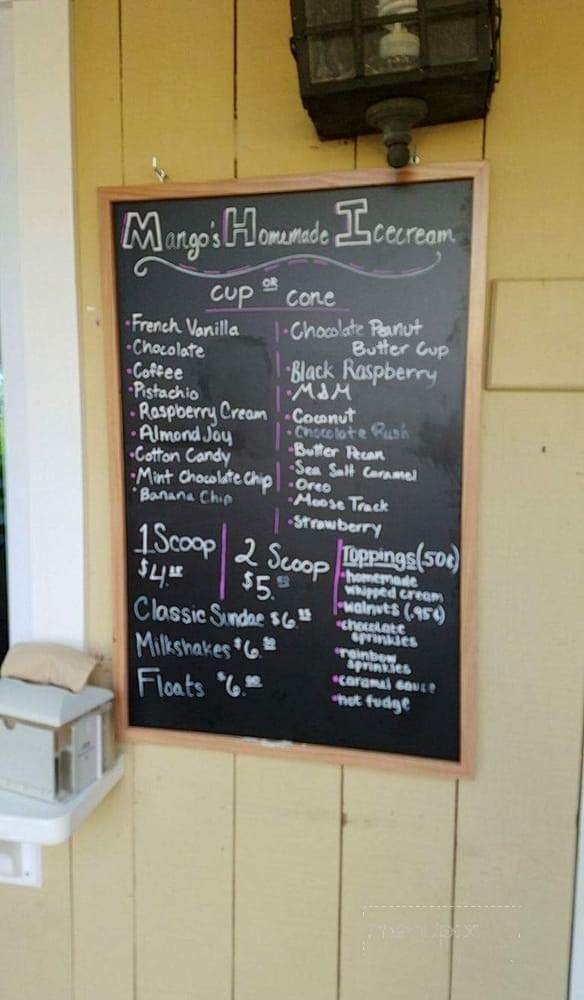 Mango's Homemade Icecream
cup OR cone
• French Vanilla
• Chocolate
• Coffee
• Pistachio
• Raspberry Cream
• Almond Joy
• Cotton Candy
• Mint Chocolate Chip
• Banana Chip
• Chocolate Peanut
Butter Cup
• Black Raspberry
• M&M
• Coconut
• Chocolate Rush
• Butter Pecan
• Sea Salt Caramel
• Oreo
• Moose Track
• Strawberry
1 Scoop
$4.
2 Scoop
$5.
Classic Sundae $6.
Milkshakes $6.
Floats $6.
Toppings (50¢)
• homemade
whipped cream
• walnuts (.95¢)
• chocolate
sprinkles
• rainbow
sprinkles
• caramel sauce
• hot fudge